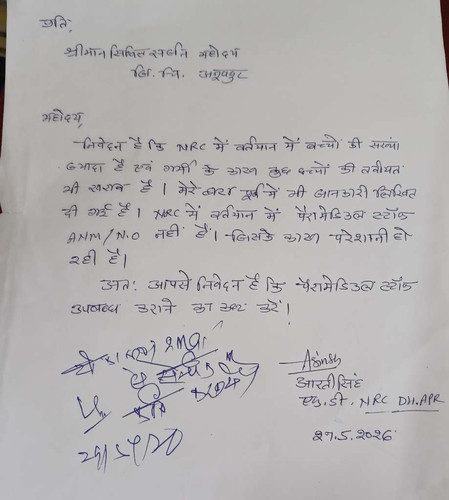 प्रति,
श्रीमान सिविल सर्जन महोदय
जि. चि. अनूपपुर
महोदय,
निवेदन है कि NRC में वर्तमान में बच्चों की संख्या
ज्यादा है एवं गर्मी के कारण कुछ बच्चों की तबीयत
भी खराब है। मेरे द्वारा पूर्व में भी जानकारी लिखित
दी गई है। NRC में वर्तमान में पैरामेडिकल स्टॉफ
ANM/N.O नहीं है। जिसके कारण परेशानी हो
रही है।
अतः आपसे निवेदन है कि पैरामेडिकल स्टॉफ
उपलब्ध कराने का कष्ट करें।
आरती सिंह
एफ.डी. NRC DH.APR
27.5.2026